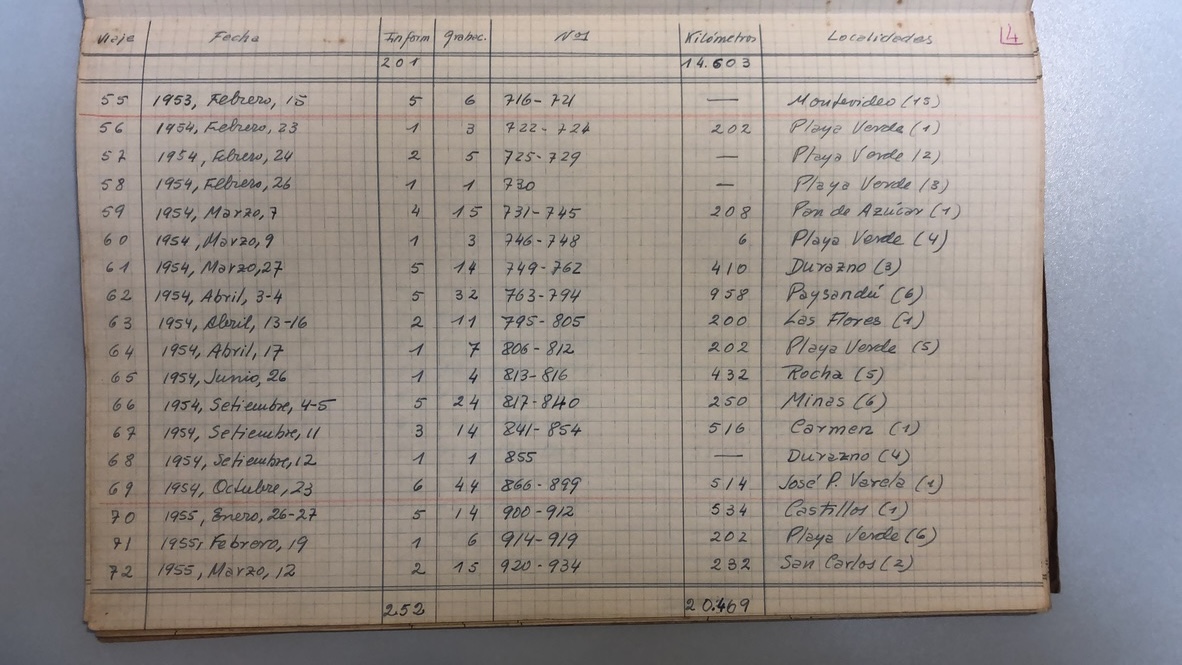 Viaje Fecha Inform grabac. Nos Kilómetros Localidades 4
201 14.603
55 1953, Febrero, 15 5 6 716-721 — Montevideo (15)
56 1954, Febrero, 23 1 3 722-724 202 Playa Verde (1)
57 1954, Febrero, 24 2 5 725-729 — Playa Verde (2)
58 1954, Febrero, 26 1 1 730 — Playa Verde (3)
59 1954, Marzo, 7 4 15 731-745 208 Pan de Azúcar (1)
60 1954, Marzo, 9 1 3 746-748 6 Playa Verde (4)
61 1954, Marzo, 27 5 14 749-762 410 Durazno (3)
62 1954, Abril, 3-4 5 32 763-794 958 Paysandú (6)
63 1954, Abril, 13-16 2 11 795-805 200 Las Flores (1)
64 1954, Abril, 17 1 7 806-812 202 Playa Verde (5)
65 1954, Junio, 26 1 4 813-816 432 Rocha (5)
66 1954, Setiembre, 4-5 5 24 817-840 250 Minas (6)
67 1954, Setiembre, 11 3 14 841-854 516 Carmen (1)
68 1954, Setiembre, 12 1 1 855 — Durazno (4)
69 1954, Octubre, 23 6 44 866-899 514 José P. Varela (1)
70 1955, Enero, 26-27 5 14 900-912 534 Castillos (1)
71 1955, Febrero, 19 1 6 914-919 202 Playa Verde (6)
72 1955, Marzo, 12 2 15 920-934 232 San Carlos (2)
252 20.469